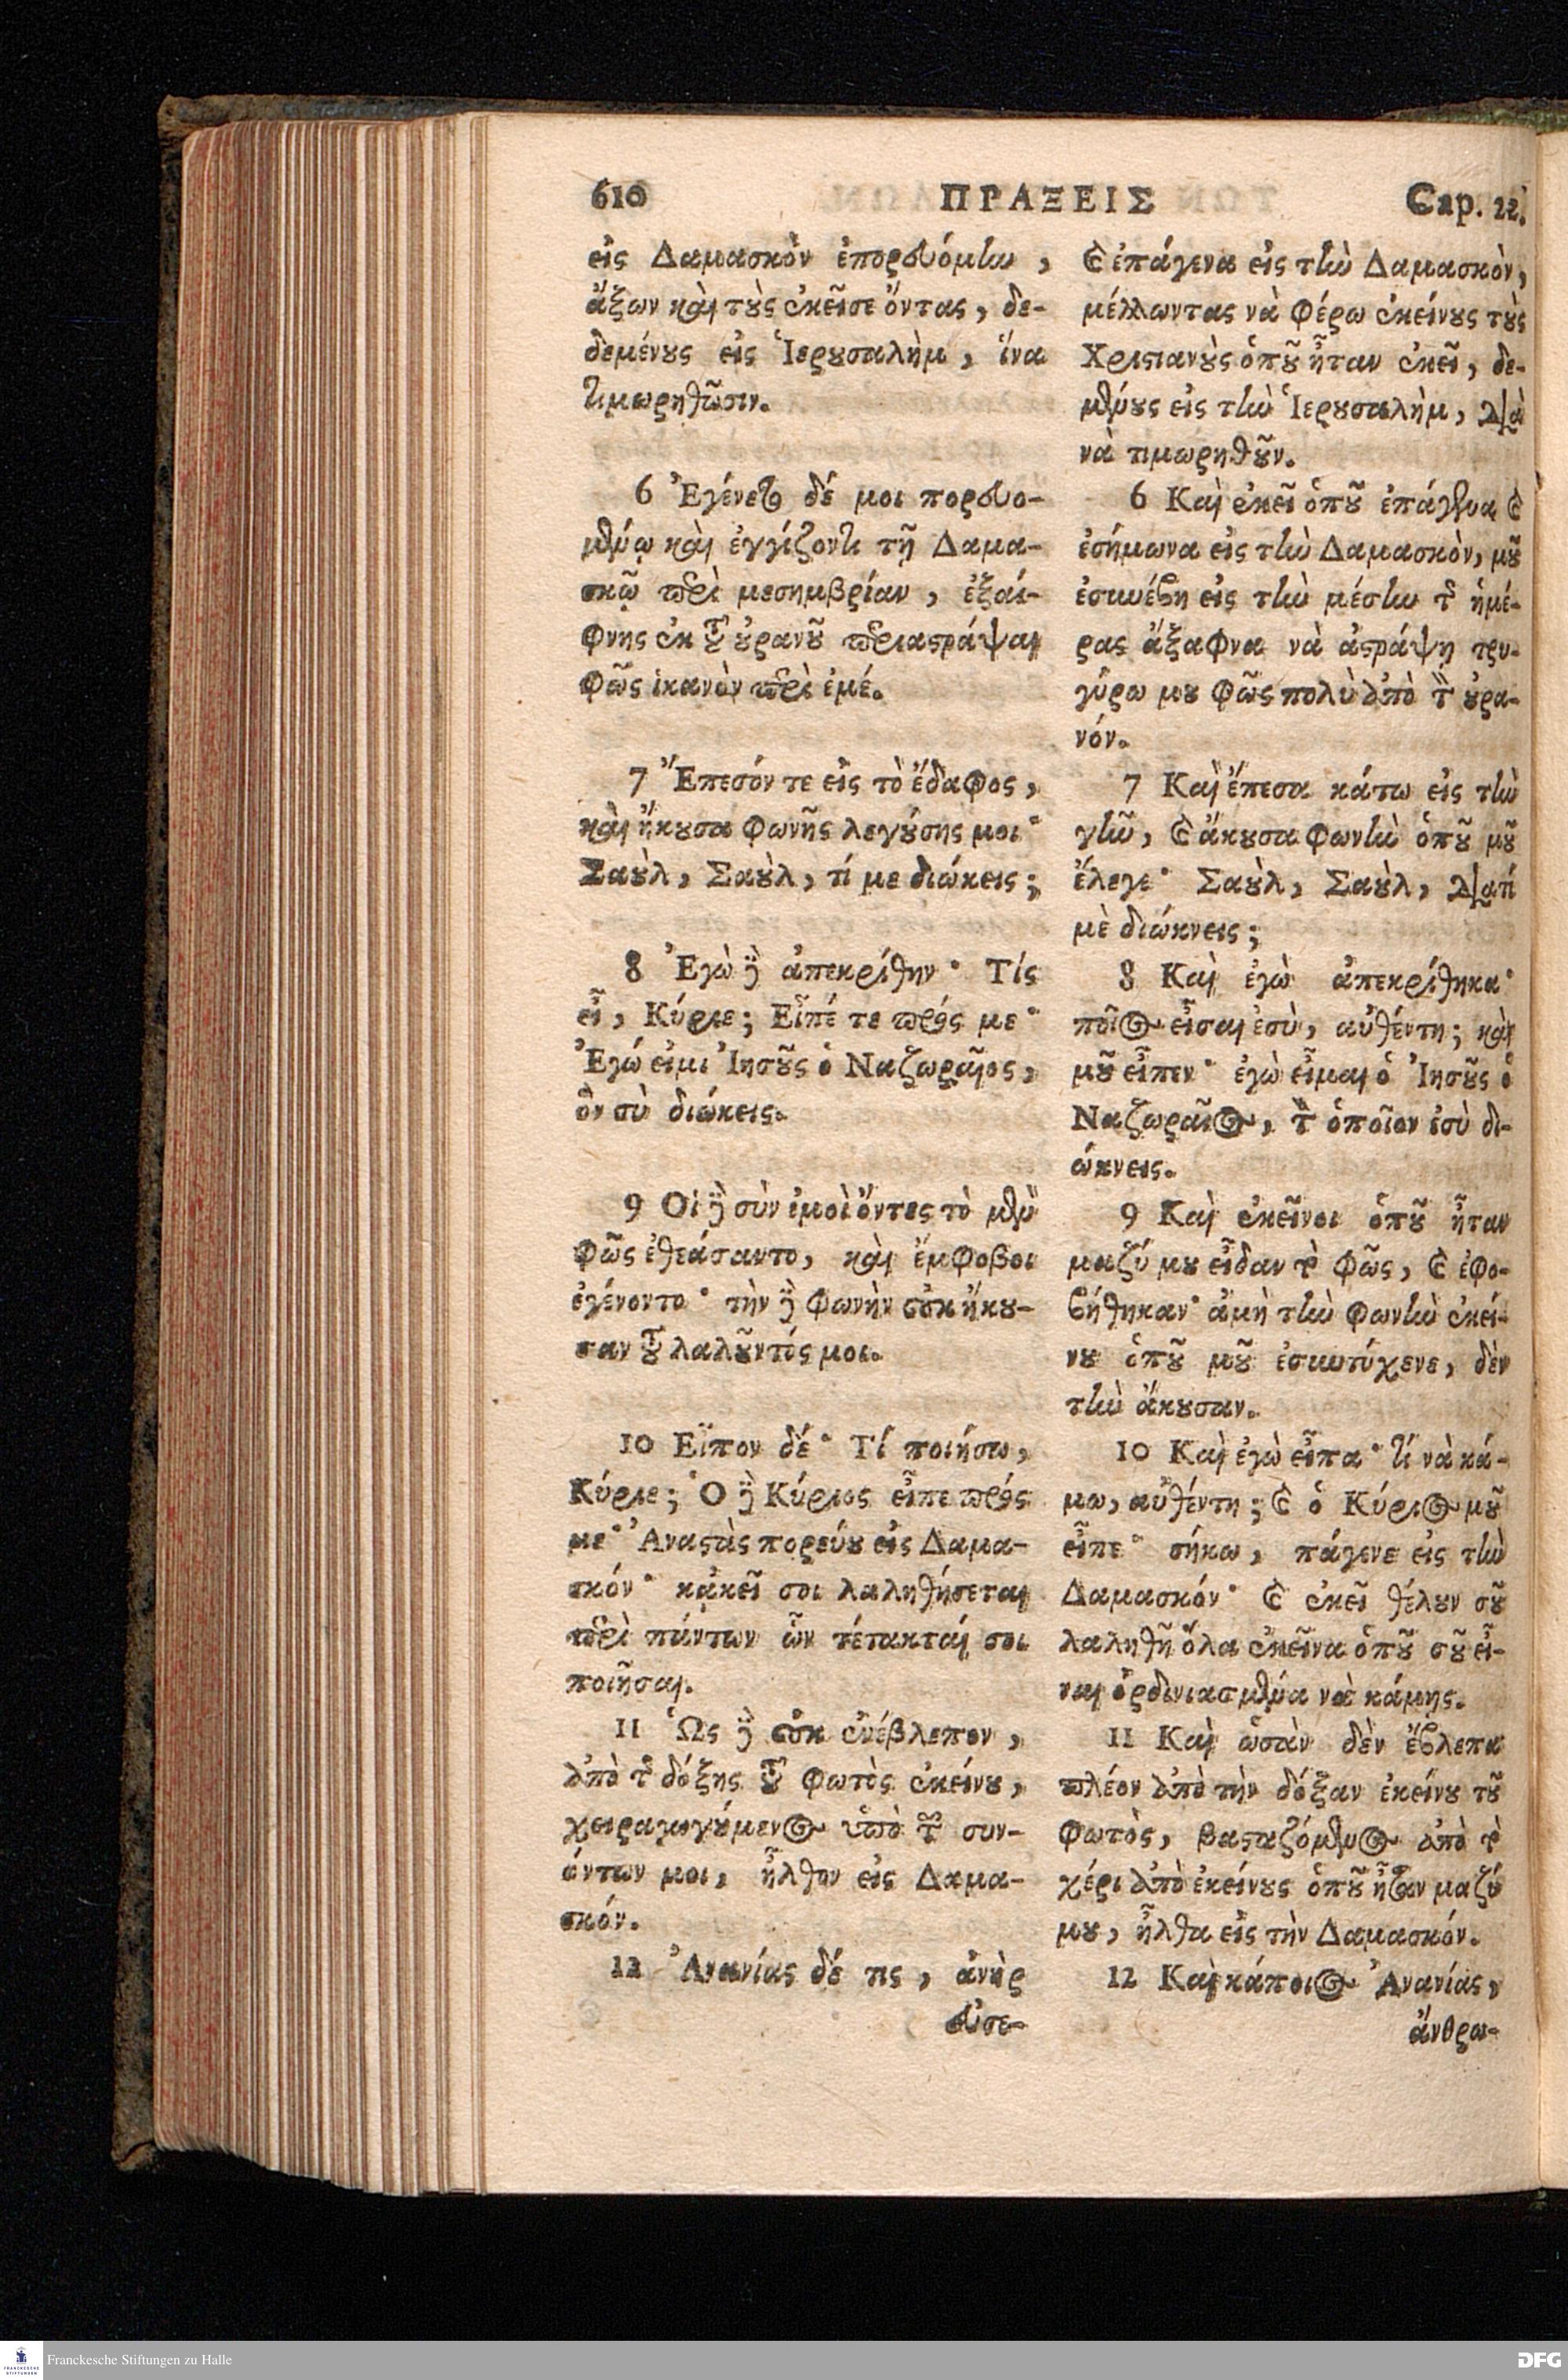 610 ΠΡΑΞΕΙΣ Cap. 22.
εἰς Δαμασκὸν ἐπορευόμην,
ἄξων καὶ τοὺς ἐκεῖσε ὄντας, δε-
δεμένους εἰς Ἱερουσαλὴμ, ἵνα
τιμωρηθῶσιν.
6 Ἐγένετο δέ μοι πορευο-
μένῳ καὶ ἐγγίζοντι τῇ Δαμα-
σκῷ περὶ μεσημβρίαν, ἐξαί-
φνης ἐκ τοῦ οὐρανοῦ περιαστράψαι
φῶς ἱκανὸν περὶ ἐμέ.
7 Ἔπεσόν τε εἰς τὸ ἔδαφος,
καὶ ἤκουσα φωνῆς λεγούσης μοι·
Σαοὺλ, Σαοὺλ, τί με διώκεις;
8 Ἐγὼ δὲ ἀπεκρίθην· Τίς
εἶ, Κύριε; Εἶπέ τε πρός με·
Ἐγώ εἰμι Ἰησοῦς ὁ Ναζωραῖος,
ὃν σὺ διώκεις.
9 Οἱ δὲ σὺν ἐμοὶ ὄντες τὸ μὲν
φῶς ἐθεάσαντο, καὶ ἔμφοβοι
ἐγένοντο· τὴν δὲ φωνὴν οὐκ ἤκου-
σαν τοῦ λαλοῦντός μοι.
10 Εἶπον δέ· Τί ποιήσω,
Κύριε; Ὁ δὲ Κύριος εἶπε πρός
με· Ἀναστὰς πορεύου εἰς Δαμα-
σκόν· κἀκεῖ σοι λαληθήσεται
περὶ πάντων ὧν τέτακταί σοι
ποιῆσαι.
11 Ὡς δὲ οὐκ ἐνέβλεπον,
ἀπὸ τῆς δόξης τοῦ φωτὸς ἐκείνου,
χειραγωγούμενος ὑπὸ τῶν συν-
όντων μοι, ἦλθον εἰς Δαμα-
σκόν.
12 Ἀνανίας δέ τις, ἀνὴρ
εὐσε-
καὶ ἐπάγενα εἰς τὴν Δαμασκὸν,
μέλλωντας νὰ φέρω ἐκείνους τοὺς
Χριστιανοὺς ὁποῦ ἦταν ἐκεῖ, δε-
μένους εἰς τὴν Ἱερουσαλὴμ, διὰ
νὰ τιμωρηθοῦν.
6 Καὶ ἐκεῖ ὁποῦ ἐπάγενα καὶ
ἐσήμωνα εἰς τὴν Δαμασκὸν, μοῦ
ἐσυνέβη εἰς τὴν μέσην τῆς ἡμέ-
ρας ἄξαφνα νὰ ἀστράψῃ τρυ-
γύρω μου φῶς πολὺ ἀπὸ τὸν οὐρα-
νόν.
7 Καὶ ἔπεσα κάτω εἰς τὴν
γῆν, καὶ ἄκουσα φωνὴν ὁποῦ μοῦ
ἔλεγε· Σαοὺλ, Σαοὺλ, διατί
μὲ διώκνεις;
8 Καὶ ἐγὼ ἀπεκρίθηκα·
ποῖος εἶσαι ἐσὺ, αὐθέντη; καὶ
μοῦ εἶπεν· ἐγὼ εἶμαι ὁ Ἰησοῦς ὁ
Ναζωραῖος, τὸν ὁποῖον ἐσὺ δι-
ώκνεις.
9 Καὶ ἐκεῖνοι ὁποῦ ἦταν
μαζύ μου εἶδαν τὸ φῶς, καὶ ἐφο-
βήθηκαν· ἀμὴ τὴν φωνὴν ἐκεί-
νου ὁποῦ μοῦ ἐσυντύχενε, δὲν
τὴν ἄκουσαν.
10 Καὶ ἐγὼ εἶπα· τί νὰ κά-
μω, αὐθέντη; καὶ ὁ Κύριος μοῦ
εἶπε· σήκω, πάγενε εἰς τὴν
Δαμασκόν· καὶ ἐκεῖ θέλουν σοῦ
λαληθῆ ὅλα ἐκεῖνα ὁποῦ σοῦ εἶ-
ναι ὀρδινιασμένα νὰ κάμῃς.
11 Καὶ ὡσὰν δὲν ἔβλεπα
πλέον ἀπὸ τὴν δόξαν ἐκείνου τοῦ
φωτὸς, βασταζόμενος ἀπὸ τὸ
χέρι ἀπὸ ἐκείνους ὁποῦ ἦταν μαζύ
μου, ἦλθα εἰς τὴν Δαμασκόν.
12 Καὶ κάποιος Ἀνανίας,
ἄνθρω-
Franckesche Stiftungen zu Halle
DFG